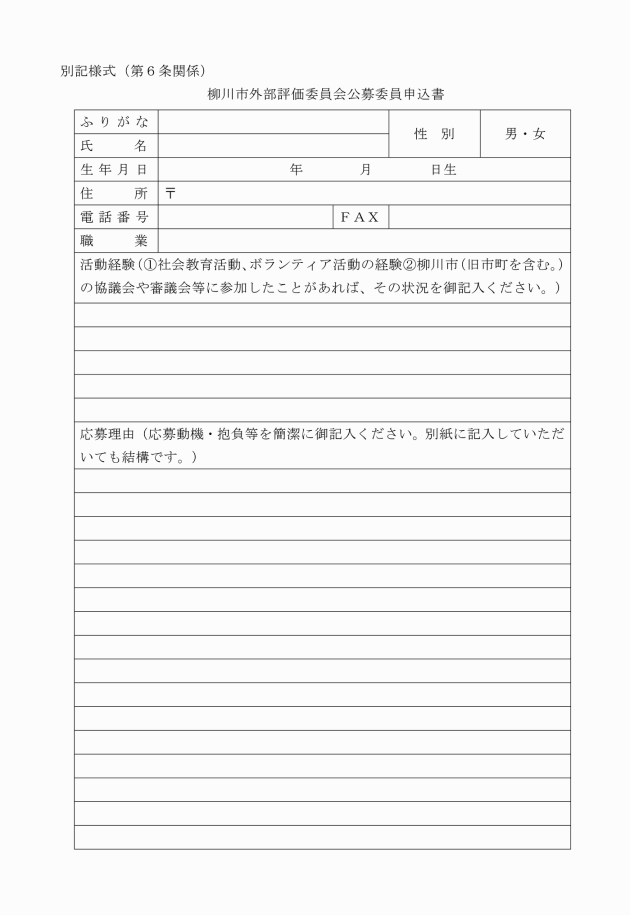 別記様式（第６条関係）
柳川市外部評価委員会公募委員申込書
ふりがな
性　別　男・女
氏　　　名
生年月日　年　　　月　　　日生
住　　　所　〒
電話番号　ＦＡＸ
職　　　業
活動経験（①社会教育活動、ボランティア活動の経験②柳川市（旧市町を含む。）
の協議会や審議会等に参加したことがあれば、その状況を御記入ください。）
応募理由（応募動機・抱負等を簡潔に御記入ください。別紙に記入していただ
いても結構です。）